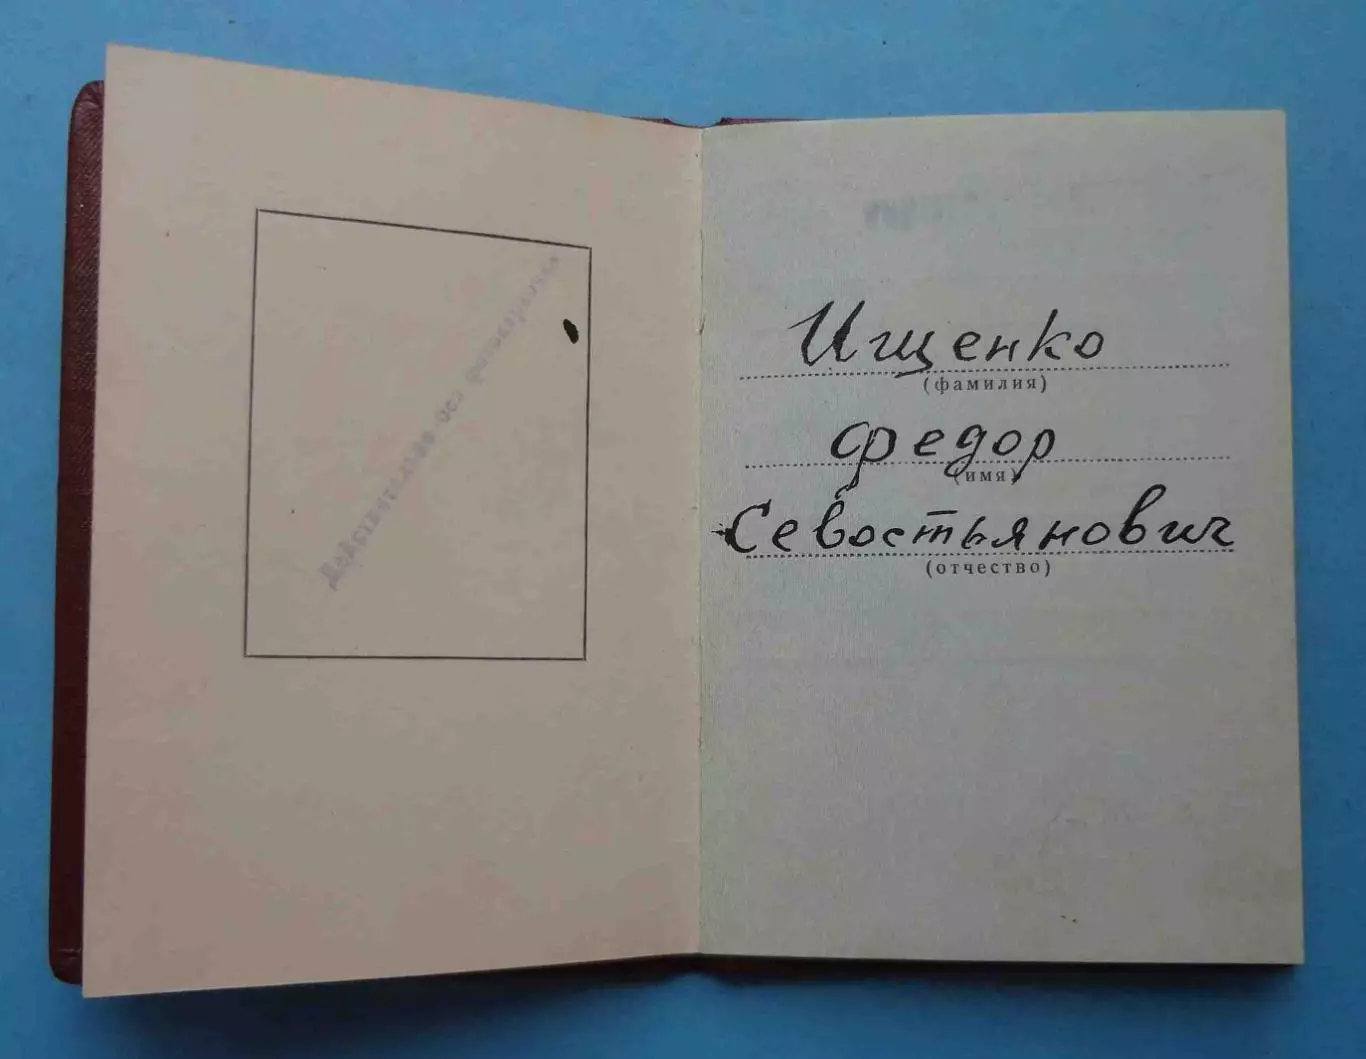 Действительно без фотокарточки
Ищенко
(фамилия)
Федор
(имя)
Севостьянович
(отчество)